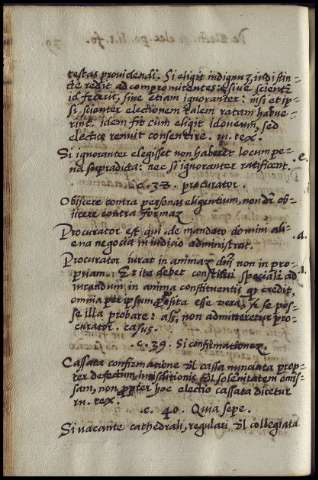 testas providendi. Si eligit indignũ, indistin
cte redit ad compromittentes: siue scient
id fecerit, siue etiam ignoranter: nisi et ip
si scienter electionem talem ratam habue
rint. idem fit cum eligit idoneum, sed
electus renuit consentire. in. tex.
Si ignoranter elegisset non haberet locum pe
na supradicta: nec si ignoranter ratificent. .e.
c. 38. procurator.
Obijcere contra personas eligentium, non dr̃ ob
ijcere contra formaz
Procurator est qui de mandato domini ali
ena negocia in iudicio administrat. .a.
Procurator iurat in animaz dñi non in pro
priam. Et ita debet constitui specialr̃ ad
iurandum in anima constituentis qz credit
omnia per ipsum posita esse vera, et se pos
se illa probare: alr̃ non admitteretur pro
curator. casus.
c. 39. Si confirmationez
Cassata confirmatione vl cassa nunciata prop
ter defectum iurisdictionis vl solemnitatem omis
sam, non propter hoc electio cassata dicetur
in. tex.
c. 40. Quia sepe.
Si vacante cathedrali, regulari vl collegiata